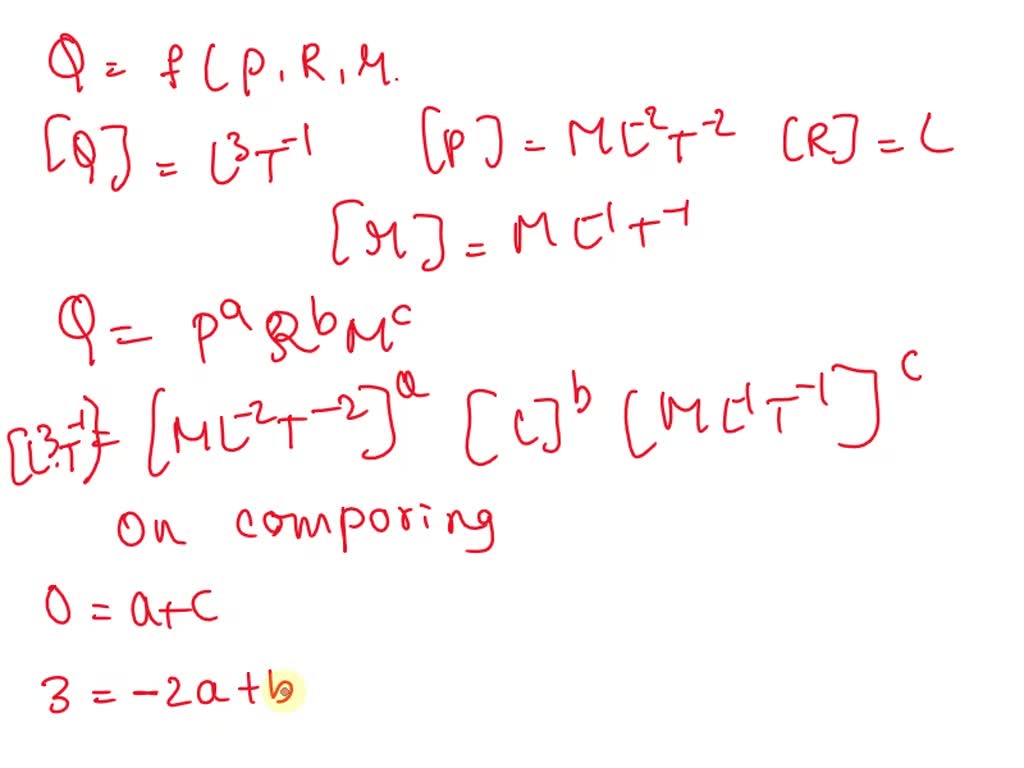 Q = f(p, R, μ.
[Q] = L³T⁻¹ [p] = ML⁻²T⁻² [R] = L
[μ] = ML⁻¹T⁻¹
Q = pᵃ Rᵇ μᶜ
[L³T⁻¹] = [ML⁻²T⁻²]ᵃ [L]ᵇ [ML⁻¹T⁻¹]ᶜ
On comporing
0 = a+c
3 = -2a+b